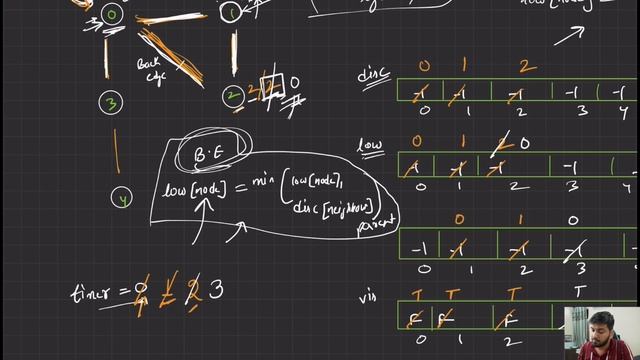 0
1
Back
edge
3
2
2/2 0
4
B.E
low[node] = min (low[node],
disc[neighbour])
parent
timer = 0 1 2 3
low[node] =
disc
0 1 2
-1 -1 -1 -1 -1
0 1 2 3 4
low
0 1 2 0
-1 -1 -1 -1
0 1 2 3 4
0 1 0
-1 -1 -1 -1
0 1 2 3
vis
T T T T
F F F
0 1 2